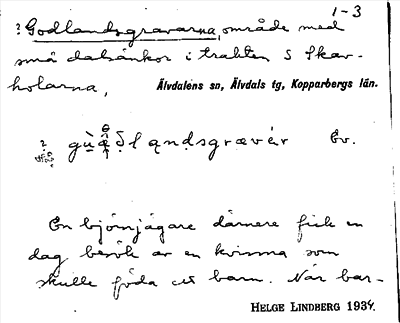 1-3
? Godlandsgravarna, område med
små dalsänkor i trakten S Skar-
holarna,
Älvdalens sn, Älvdals tg, Kopparbergs län.
Ev.
En björnjägare därnere fick en
dag besök av en kvinna som
skulle föda ett barn. När bar-
HELGE LINDBERG 1934.